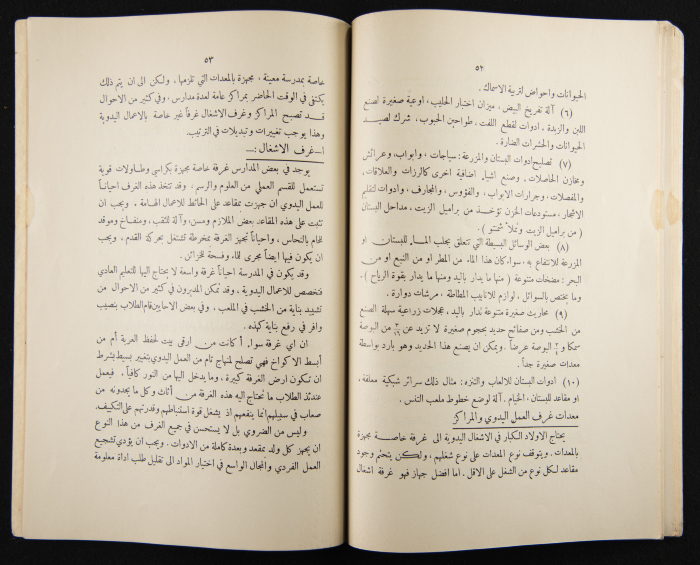 ٥٢
الحيوانات واحواض لتربية الاسماك .
(٦) آلة تفريخ البيض ، ميزان اختبار الحليب ، اوعية صغيرة لصنع
اللبن والزبدة ، ادوات لقطع اللفت ، طواحين الحبوب ، شرك لصيد
الحيوانات والحشرات الضارة .
(٧) تصليح ادوات البستان والمزرعة : سياجات ، وابواب ، وعرائش
ومخازن الحاصلات ، وصنع اشياء اضافية اخرى كالرزات والعلاقات ،
والمفصلات ، وجرارات الابواب ، والفؤوس ، والمجارف ، وادوات لتقليم
الاشجار ، مستودعات الخزن تؤخذ من براميل الزيت ، مداحل البستان
( من براميل الزيت وتملأ شمنتو ) .
(٨) بعض الوسائل البسيطة التي تتعلق بجلب الماء للبستان او
المزرعة للانتفاع به ، سواء كان هذا الماء من المطر او من النبع او من
البحر : مضخات متنوعة ( منها ما يدار باليد ومنها ما يدار بقوة الرياح ) .
وما يختص بالسوائل ، لوازم للانابيب المطاطة ، مرشات دوارة .
(٩) محاريث صغيرة متنوعة تدار باليد ، عجلات زراعية سهلة الصنع
من الخشب ومن صفائح حديد بحجوم صغيرة لا تزيد عن من البوصة
سمكا و البوصة عرضاً . ويمكن ان يصنع هذا الحديد وهو بارد بواسطة
معدات صغيرة جداً .
(١٠) ادوات البستان للالعاب والتنزه : مثال ذلك سرائر شبكية معلقة ،
او مقاعد للبستان ، الخيام . آلة لوضع خطوط ملعب التنس .
معدات غرف العمل اليدوي والمراكز
يحتاج الاولاد الكبار في الاشغال اليدوية الى غرفة خاصة مجهزة
بالمعدات . ويتوقف نوع المعدات على نوع شغلهم ، ولكن يتحتم وجود
مقاعد لكل نوع من الشغل على الاقل . اما افضل جهاز فهو غرفة اشغال
٥٣
خاصة بمدرسة معينة ، مجهزة بالمعدات التي تلزمها . ولكن الى ان يتم ذلك
يكتفى في الوقت الحاضر بمراكز عامة لعدة مدارس ، وفي كثير من الاحوال
قد تصبح المراكز وغرف الاشغال غرفاً غير خاصة بالاعمال اليدوية
وهذا يوجب تغييرات وتبديلات في الترتيب .
١ـ غرف الاشغال :ـ
يوجد في بعض المدارس غرفة خاصة مجهزة بكراسي وطاولات قوية
تستعمل للقسم العملي من العلوم والرسم ، وقد تتخذ هذه الغرف احياناً
للعمل اليدوي ان جهزت بمقاعد على الحائط للاعمال الهامة . ويجب ان
تثبت على هذه المقاعد بعض الملازم ومسن ، وآلة للثقب ، ومنفاخ وموقد
للحام بالنحاس ، واحياناً تجهز الغرفة بمخرطة تشتغل بحركة القدم ، ويجب
ان يكون فيها ايضاً مجرى للماء وفسحة للخزائن .
وقد يكون في المدرسة احياناً غرفة واسعة لا يحتاج اليها للتعليم العادي
فتخصص للاعمال اليدوية ، وقد تمكن المديرون في كثير من الاحوال من
تشييد بناية من الخشب في الملعب ، وفي بعض الاحايين قام الطلاب بنصيب
وافر في رفع بناية كهذه .
ان اي غرفة سواء أكانت من ارقى بيت لحفظ العربة أم من
أبسط الاكواخ فهي تصلح لمنهاج تام من العمل اليدوي بتغيير بسيط بشرط
ان تكون ارض الغرفة كبيرة ، وما يدخل اليها من النور كافياً . فيعمل
عندئذ الطلاب ما تحتاج اليه هذه الغرفة من أثاث وكل ما يجدونه من
صعاب في سبيلهم انما ينفعهم اذ يشغل قوة استنباطهم وقدرتهم على التكييف .
وليس من الضروري بل لا يستحسن في جميع الغرف من هذا النوع
ان يجهز كل ولد بمقعد وبعدة كاملة من الادوات . ويجب ان يؤدي تشجيع
العمل الفردي والمجال الواسع في اختيار المواد الى تقليل طلب اداة معلومة